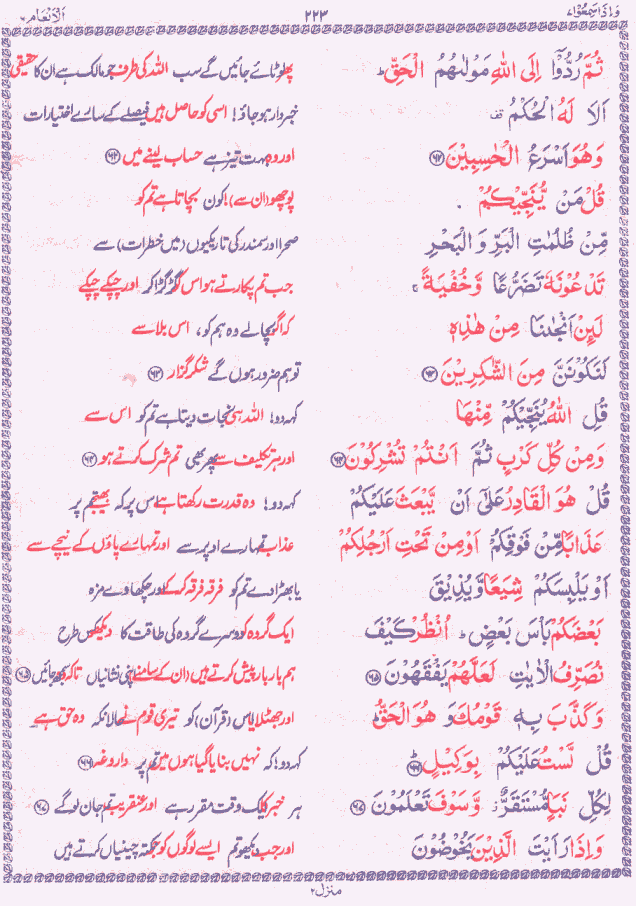 وَاِذَا سَمِعُوْا ٧ ٢٢٣ اَلْاَنْعَام ٦
ثُمَّ رُدُّوْۤا اِلَى اللّٰهِ مَوْلٰىهُمُ الْحَقِّ ؕ پھر لوٹائے جائیں گے سب اللہ کی طرف جو مالک ہے ان کا حقیقی
اَلَا لَهُ الْحُكْمُ قف خبردار ہو جاؤ! اسی کو حاصل ہیں فیصلے کے سارے اختیارات
وَهُوَ اَسْرَعُ الْحٰسِبِيْنَ ﴿٦٢﴾ اور وہ بہت تیز ہے حساب لینے میں ﴿٦٢﴾
قُلْ مَنْ يُّنَجِّيْكُمْ پوچھو (ان سے)! کون بچاتا ہے تم کو
مِّنْ ظُلُمٰتِ الْبَرِّ وَ الْبَحْرِ صحرا اور سمندر کی تاریکیوں (میں خطرات) سے
تَدْعُوْنَهٗ تَضَرُّعًا وَّخُفْيَةً ۚ جب تم پکارتے ہو اس گڑگڑا کر اور چپکے چپکے
لَىِٕنْ اَنْجٰىنَا مِنْ هٰذِهٖ کہ اگر بچالے وہ ہم کو، اس بلا سے
لَنَكُوْنَنَّ مِنَ الشّٰكِرِيْنَ ﴿٦٣﴾ تو ہم ضرور ہوں گے شکر گزار ﴿٦٣﴾
قُلِ اللّٰهُ يُنَجِّيْكُمْ مِّنْهَا کہہ دو! اللہ ہی نجات دیتا ہے تم کو اس سے
وَمِنْ كُلِّ كَرْبٍ ثُمَّ اَنْتُمْ تُشْرِكُوْنَ ﴿٦٤﴾ اور ہر تکلیف سے پھر بھی تم شرک کرتے ہو ﴿٦٤﴾
قُلْ هُوَ الْقَادِرُ عَلٰۤى اَنْ يَّبْعَثَ عَلَيْكُمْ کہہ دو! وہ قدرت رکھتا ہے اس پر کہ بھیجے تم پر
عَذَابًا مِّنْ فَوْقِكُمْ اَوْ مِنْ تَحْتِ اَرْجُلِكُمْ عذاب تمہارے اوپر سے اور تمہارے پاؤں کے نیچے سے
اَوْ يَلْبِسَكُمْ شِيَعًا وَّيُذِيْقَ یا بھڑا دے تم کو فرقہ فرقہ کر کے اور چکھا دے مزہ
بَعْضَكُمْ بَاْسَ بَعْضٍ ؕ اُنْظُرْ كَيْفَ ایک گروہ کو دوسرے گروہ کی طاقت کا دیکھو کس طرح
نُصَرِّفُ الْاٰيٰتِ لَعَلَّهُمْ يَفْقَهُوْنَ ﴿٦٥﴾ ہم بار بار پیش کرتے ہیں (ان کے سامنے) اپنی نشانیاں تاکہ وہ سمجھ جائیں ﴿٦٥﴾
وَ كَذَّبَ بِهٖ قَوْمُكَ وَ هُوَ الْحَقُّ ؕ اور جھٹلایا اس (قرآن) کو تیری قوم نے حالانکہ وہ حق ہے۔
قُلْ لَّسْتُ عَلَيْكُمْ بِوَكِيْلٍ ﴿٦٦﴾ؕ کہہ دو! کہ نہیں بنایا گیا ہوں میں تم پر داروغہ ﴿٦٦﴾
لِكُلِّ نَبَاٍ مُّسْتَقَرٌّ ؗ وَّ سَوْفَ تَعْلَمُوْنَ ﴿٦٧﴾ ہر خبر کا ایک وقت مقرر ہے اور عنقریب تم جان لو گے ﴿٦٧﴾
وَ اِذَا رَاَيْتَ الَّذِيْنَ يَخُوْضُوْنَ اور جب دیکھو تم ایسے لوگوں کو جو نکتہ چینیاں کرتے ہیں
منزل ٢